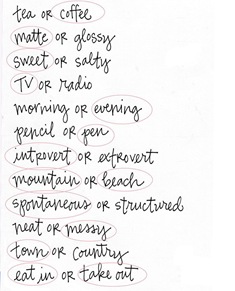 tea OR coffee
matte OR glossy
sweet OR salty
TV OR radio
morning OR evening
pencil OR pen
introvert OR extrovert
mountain OR beach
spontaneous OR structured
neat OR messy
town OR country
eat in OR take out